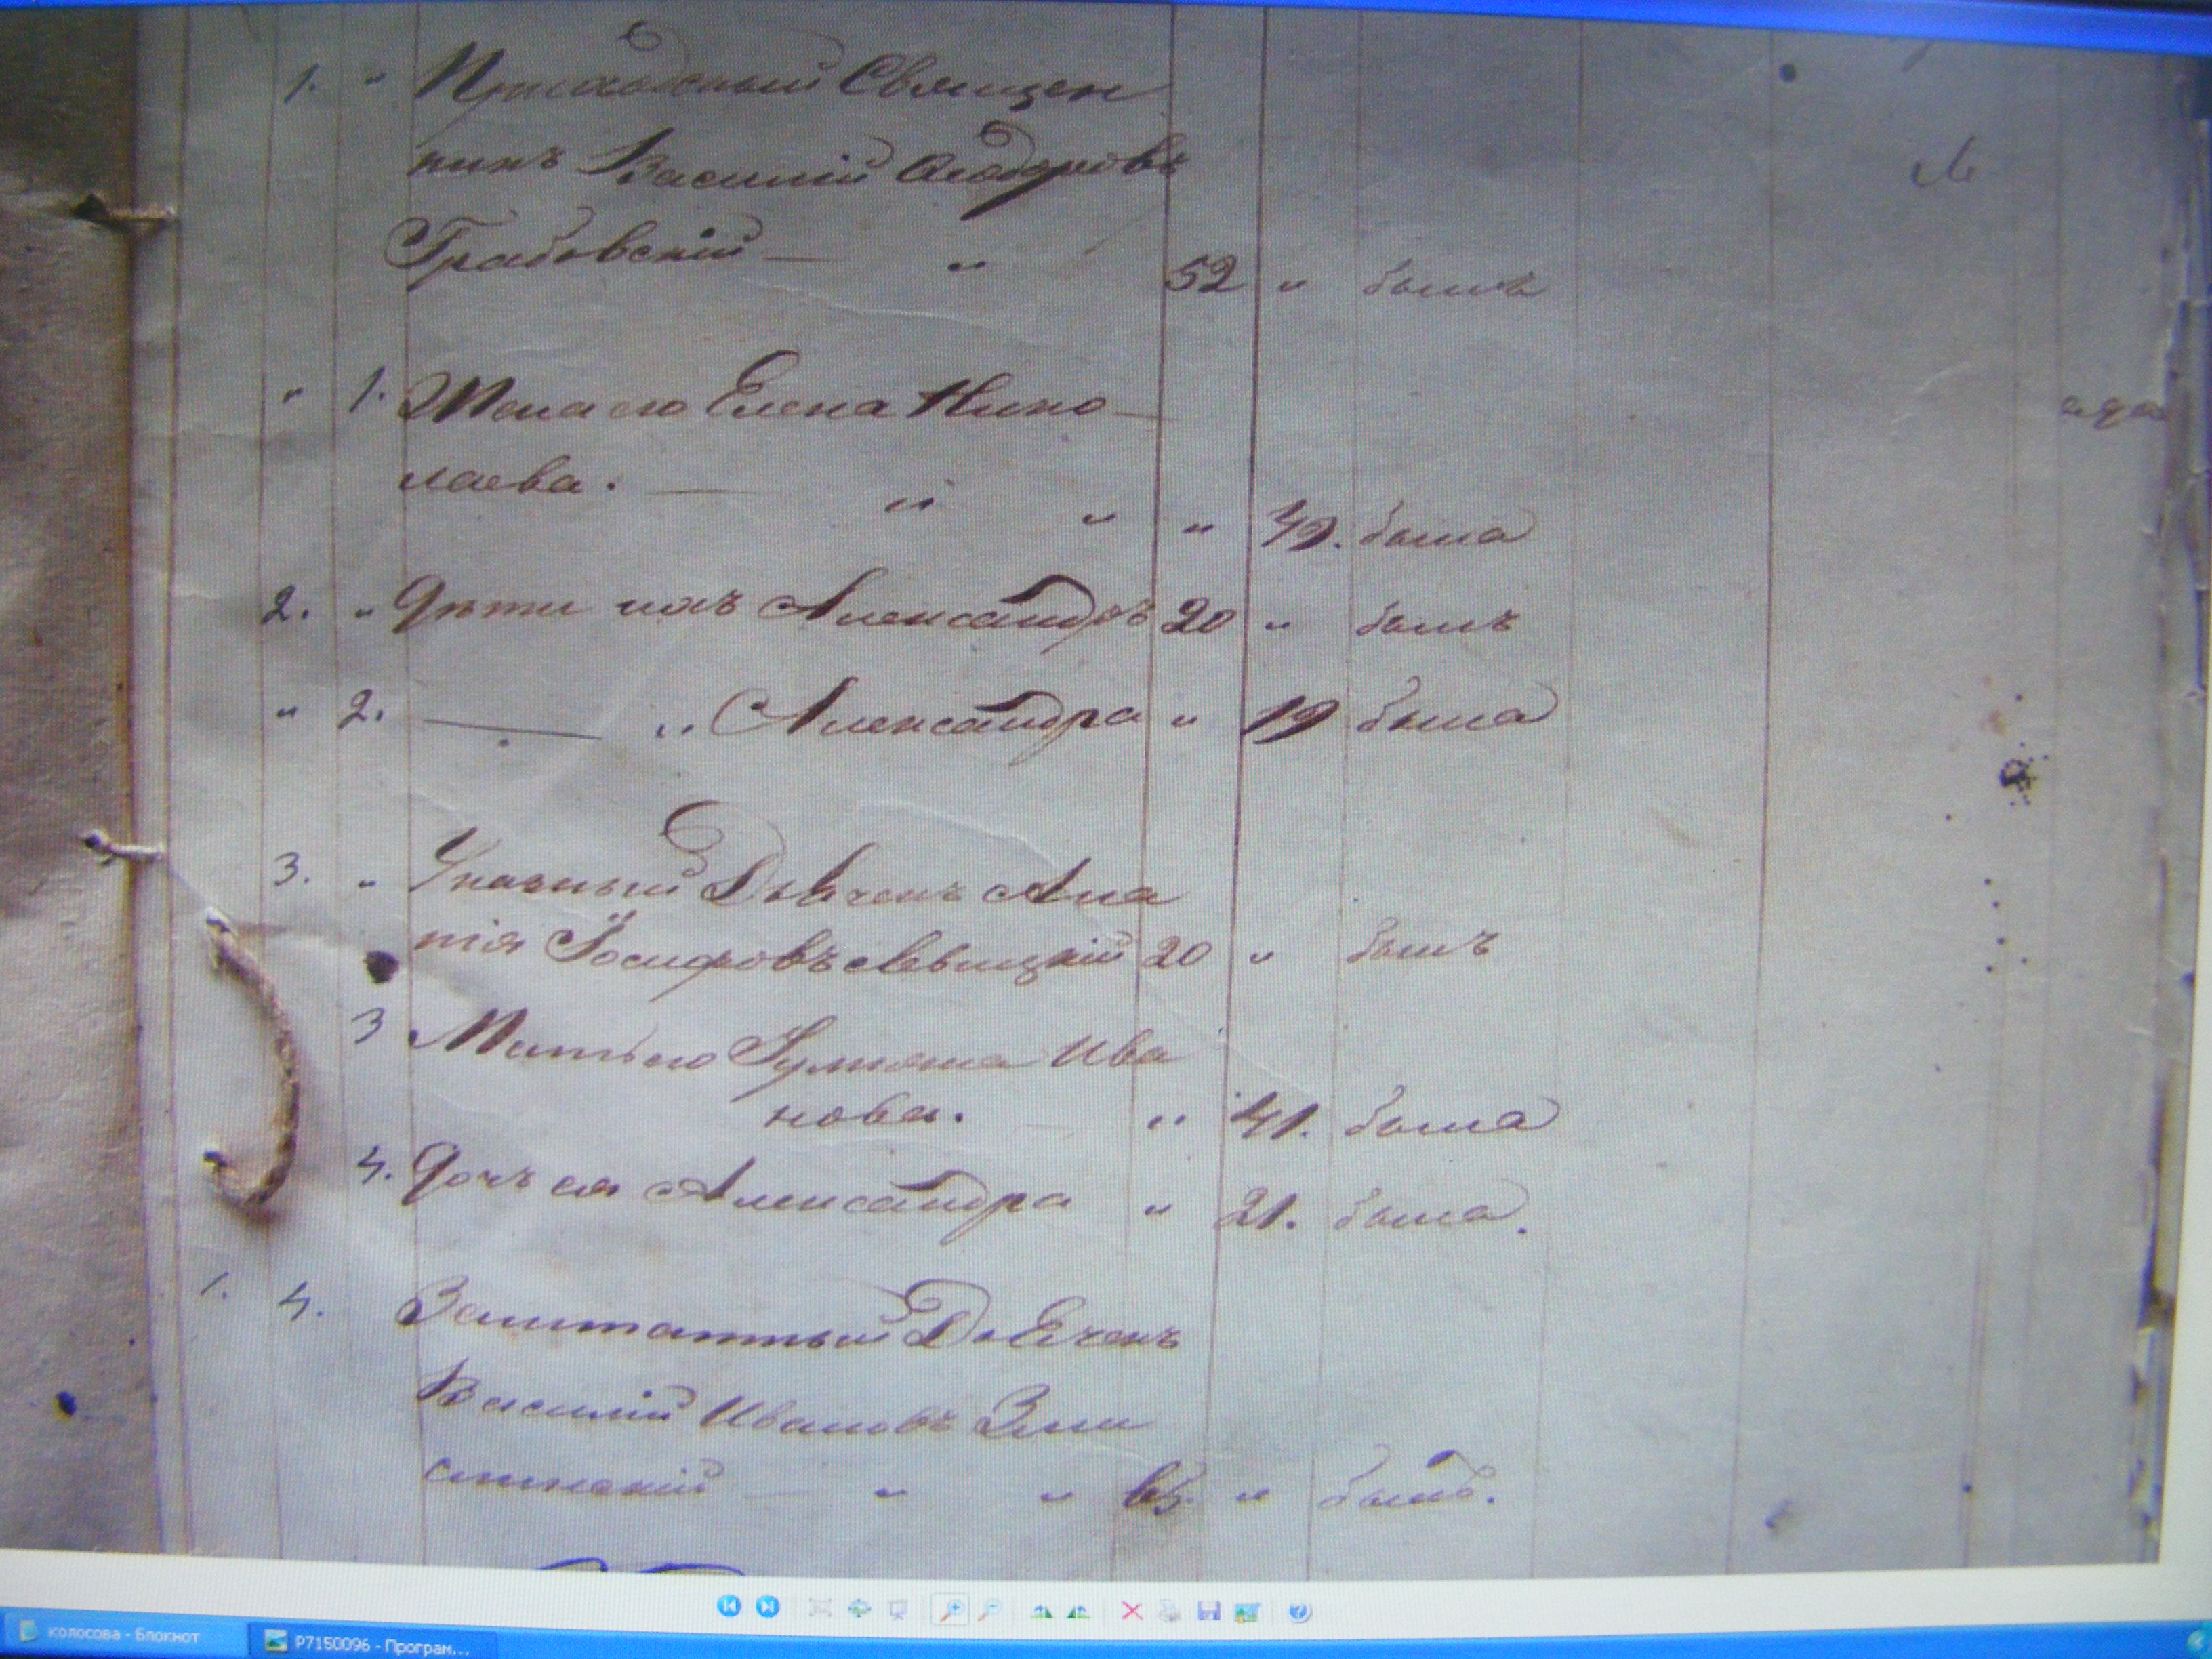 1. " Приходскый Священ
никъ Василій Ѳеодоровъ
Грабовскій — " 52 " былъ
" 1. Жена его Елена Нико—
лаева. — " " " 49. была
2. " Дѣти ихъ Александръ 20 " былъ
" 2. — " Александра " 19 была
3. " Указный Дьячекъ Ана
нія Іосифовъ Левицкій 20 " былъ
3 Мать его Іуліана Ива
нова. " 41. была
4. Дочь ея Александра " 21. была.
1. 4. Заштатный Дьячекъ
Василій Ивановъ
— " " 65. " былъ.
колосова - Блокнот
P7150096 - Програм...